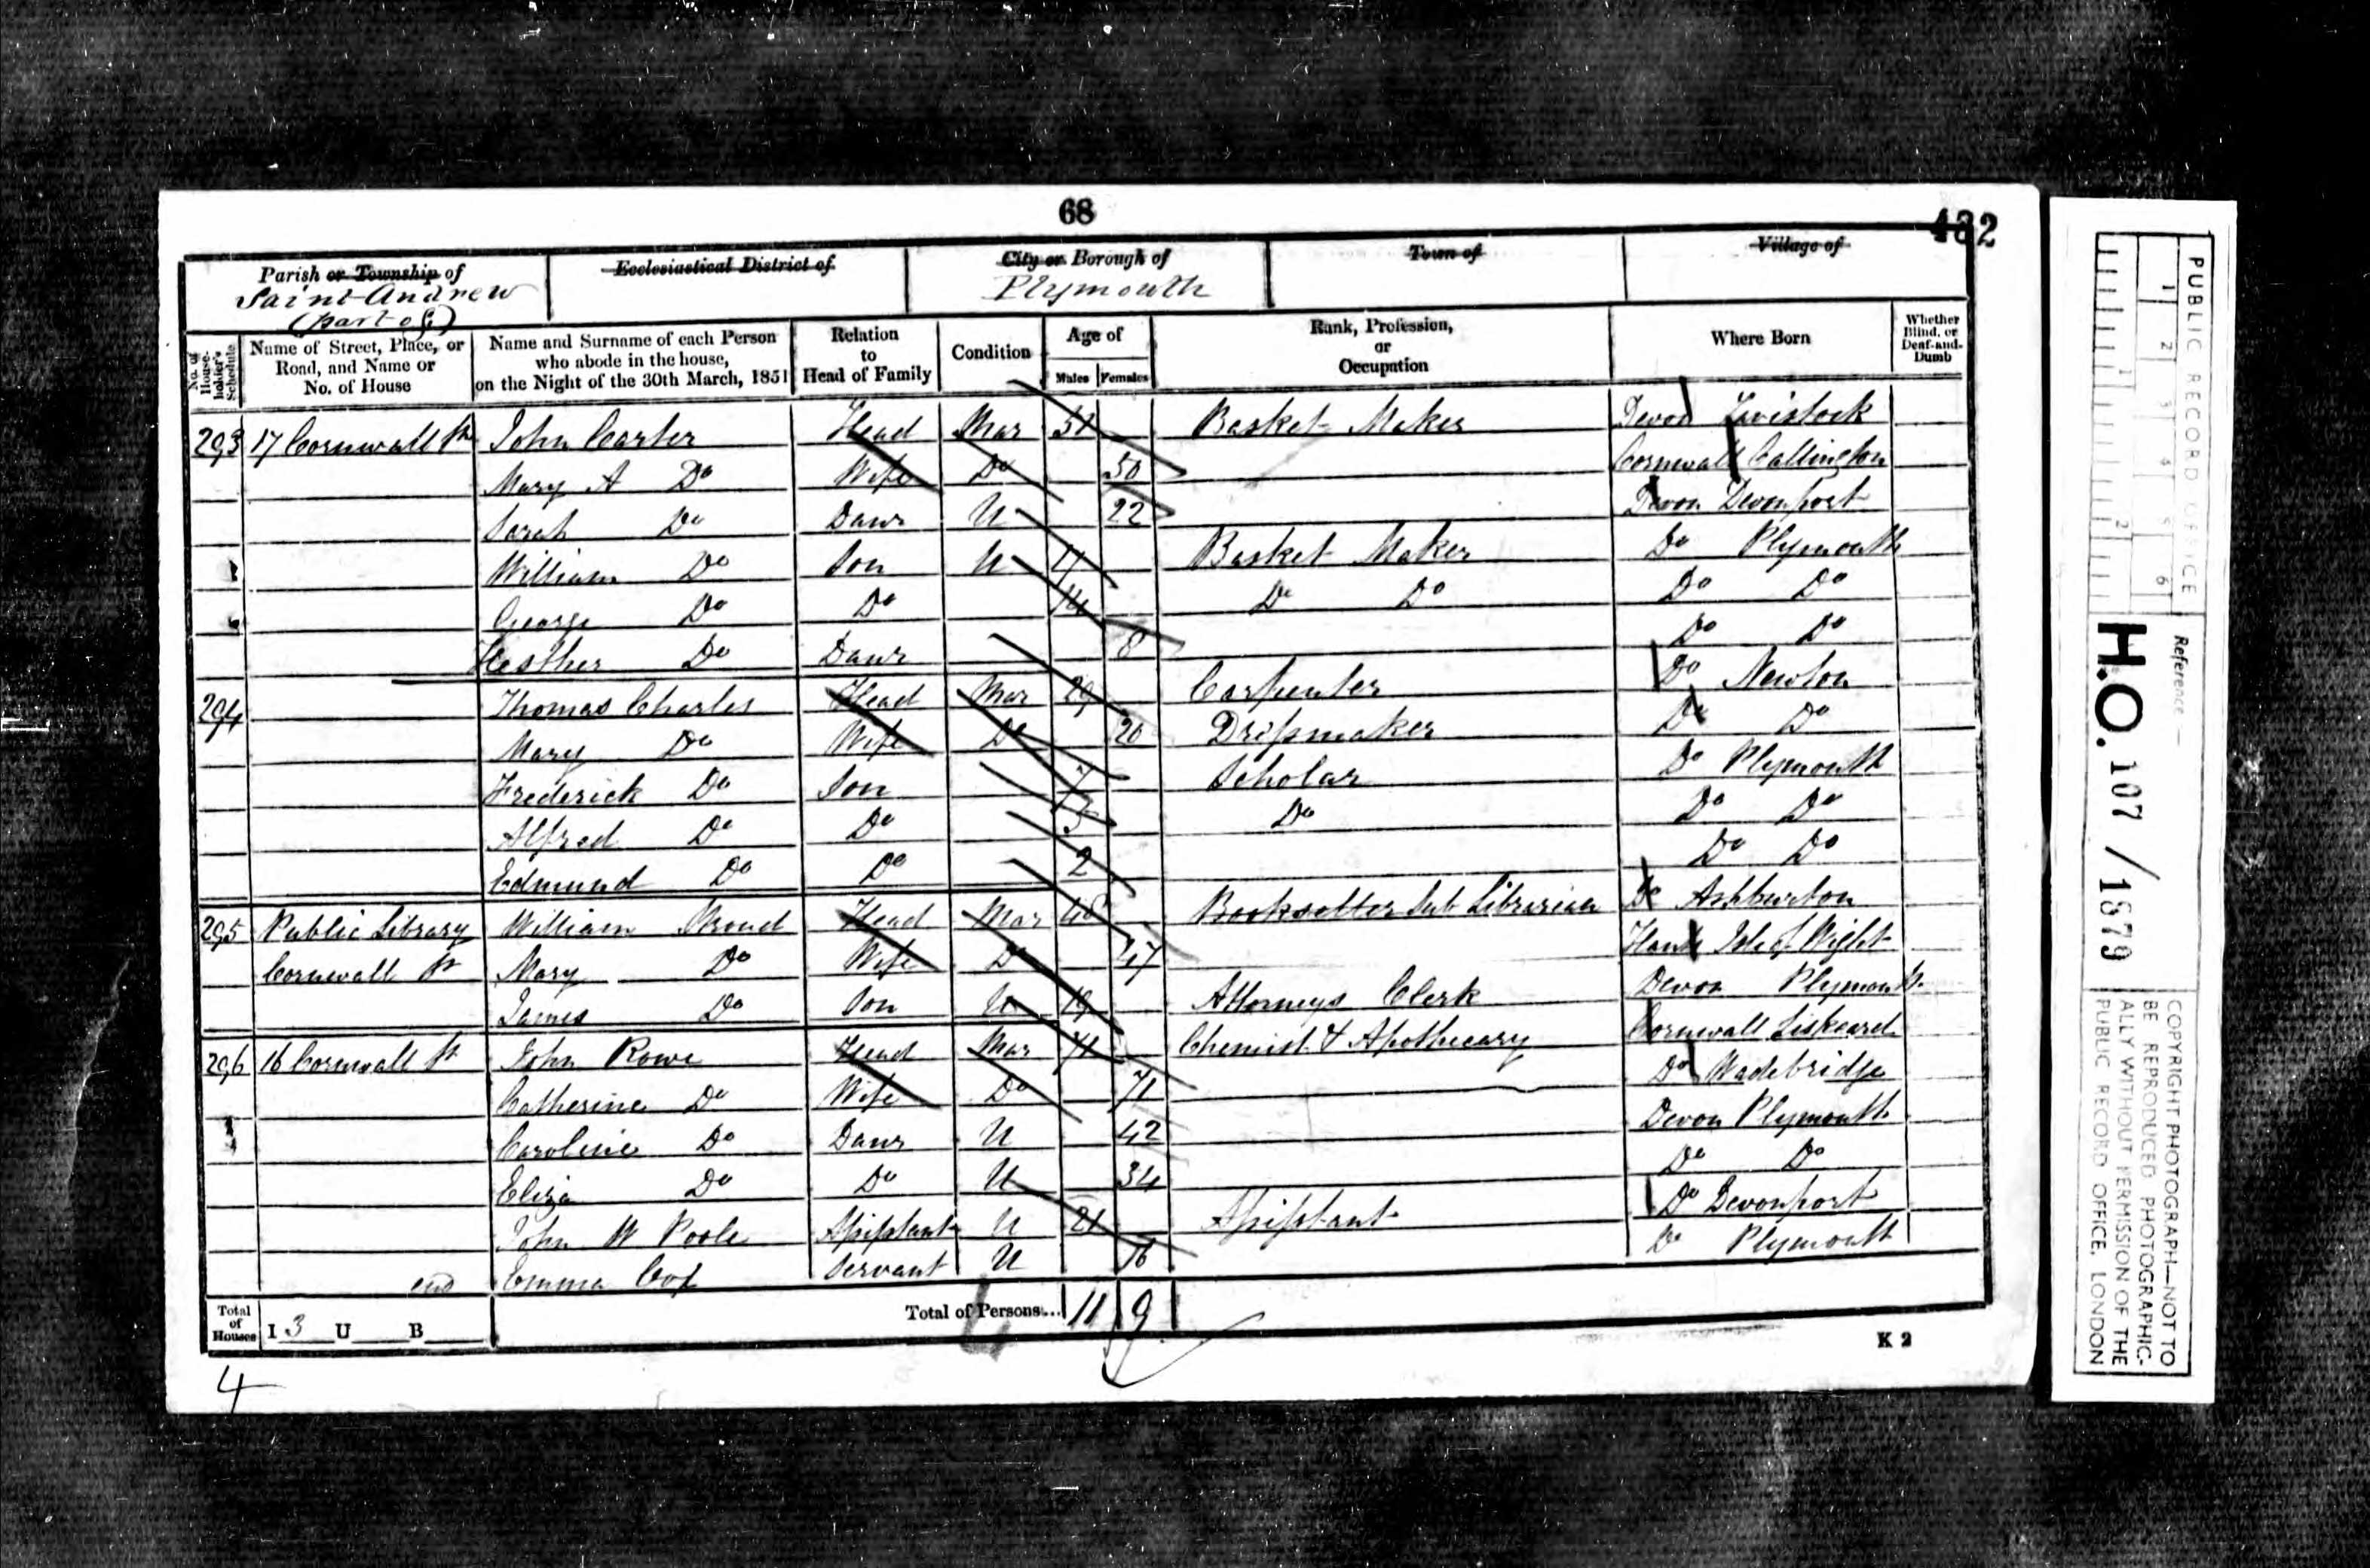 68
432
Parish or Township of
Saint Andrew
(part of)
Ecclesiastical District of
City or Borough of
Plymouth
Town of
Village of
No. of House-holder's Schedule
Name of Street, Place, or Road, and Name or No. of House
Name and Surname of each Person who abode in the house, on the Night of the 30th March, 1851
Relation to Head of Family
Condition
Age of
Males Females
Rank, Profession, or Occupation
Where Born
Whether Blind, or Deaf-and-Dumb
293 17 Cornwall St John Carter Head Mar 51 Basket Maker Devon Tavistock
Mary A Do Wife Do 50 Cornwall Callington
Sarah Do Daur U 22 Devon Devonport
William Do Son U 17 Basket Maker Do Plymouth
George Do Do 14 Do Do Do Do
Hesther Do Daur 8 Do Do
294 Thomas Charles Head Mar 29 Carpenter Do Newton
Mary Do Wife Do 20 Dressmaker Do Do
Frederick Do Son 7 Scholar Do Plymouth
Alfred Do Do 5 Do Do Do
Edmund Do Do 2 Do Do
295 Public Library William Head Mar 48 Bookseller Sub Librarian Do Ashburton
Cornwall St Mary Do Wife Do 47 Hants Isle of Wight
James Do Son U 19 Attorneys Clerk Devon Plymouth
296 16 Cornwall St John Rowe Head Mar 71 Chemist & Apothecary Cornwall Liskeard
Catherine Do Wife Do 71 Do Wadebridge
Caroline Do Daur U 42 Devon Plymouth
Eliza Do Do U 34 Do Do
John W Poole Assistant U 21 Assistant Do Devonport
end Emma Cox Servant U 16 Do Plymouth
Total of Houses I 3 U B
Total of Persons... 11 9
K 2
4
PUBLIC RECORD OFFICE
1 2 3 4 5 6
1 2
Reference:—
H.O. 107 / 1879
COPYRIGHT PHOTOGRAPH—NOT TO
BE REPRODUCED PHOTOGRAPHIC-
ALLY WITHOUT PERMISSION OF THE
PUBLIC RECORD OFFICE, LONDON